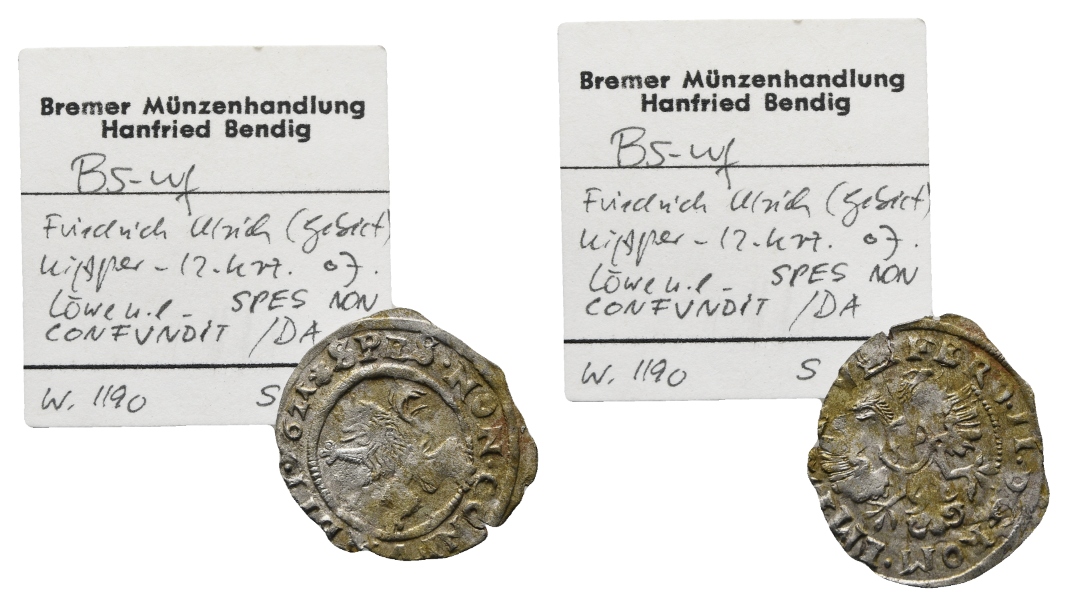 Bremer Münzenhandlung
Hanfried Bendig
BS-Wf
Friedrich Ulrich (Gebiet)
Kipper - 12-Krz. oJ.
Löwe n.l. - SPES NON
CONFVNDIT /DA
W. 1190 S
SPES·NON·CON
Bremer Münzenhandlung
Hanfried Bendig
BS-Wf
Friedrich Ulrich (Gebiet)
Kipper - 12-Krz. oJ.
Löwe n.l. - SPES NON
CONFVNDIT /DA
W. 1190 S
FERD·II·D·G·ROM·